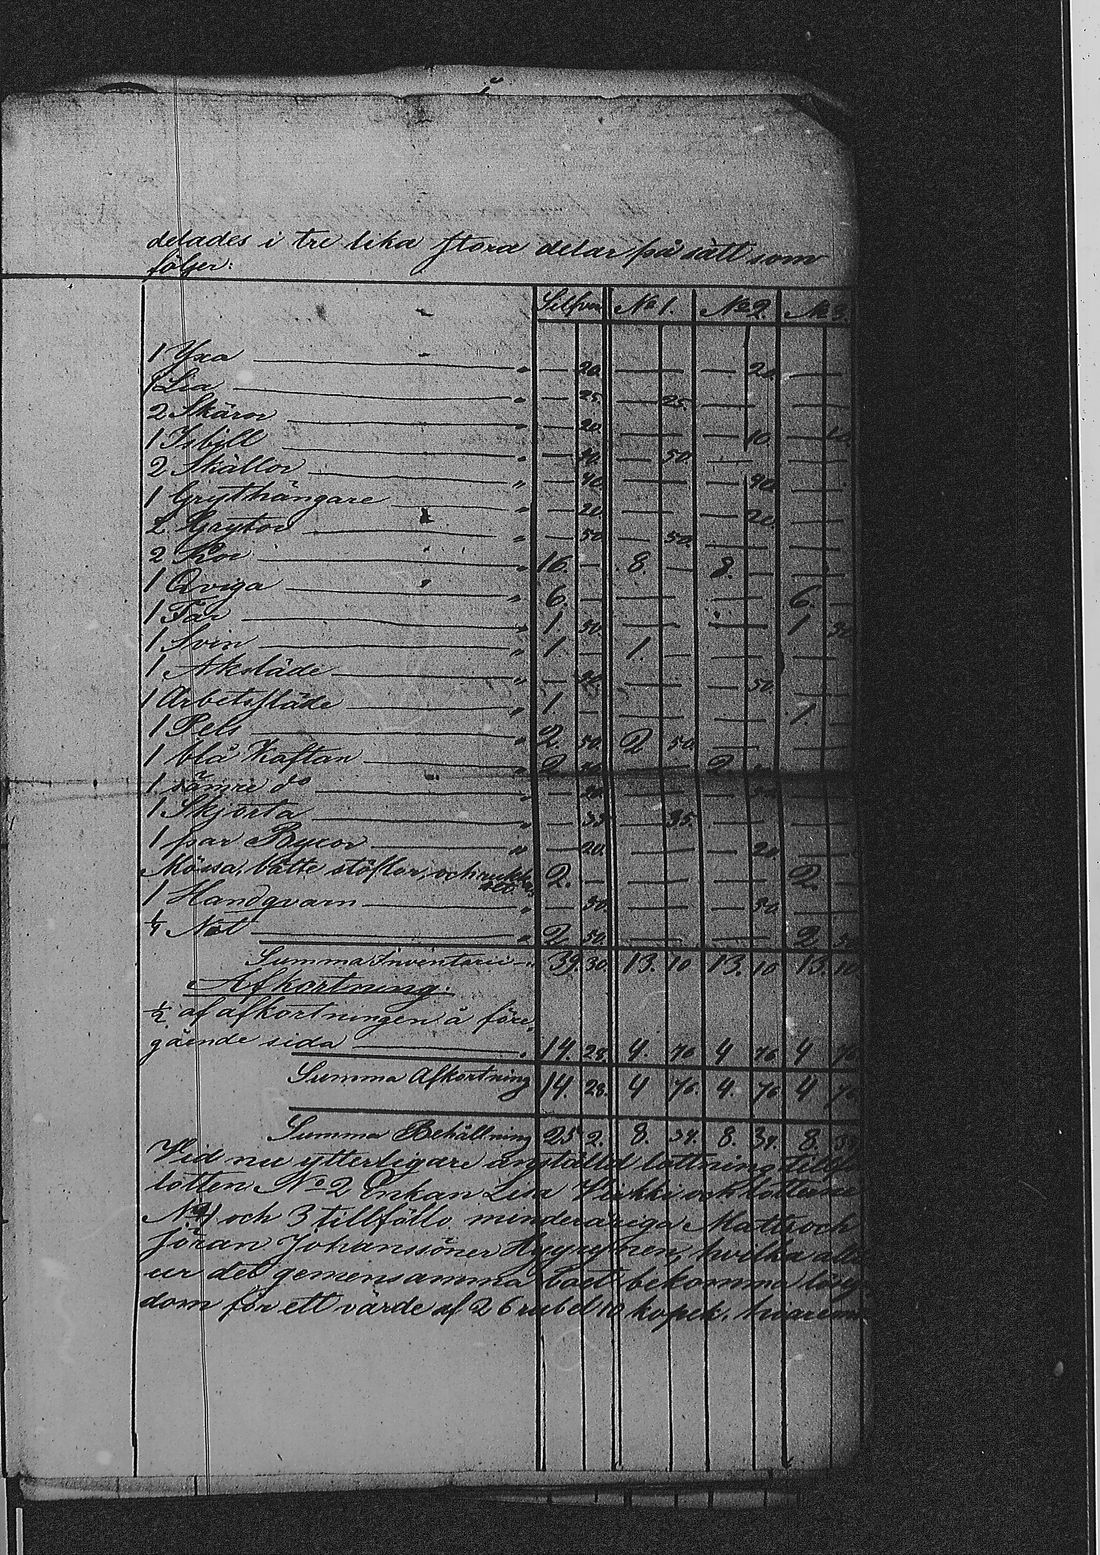 delades i tre lika stora delar på sätt som
följer:
Silfver No 1. No 2. No 3.
1 Yxa " — 20. — — — 20. — —
1 Lia " — 25. — 25. — — — —
2 Skäror " — 20. — — — 10. — 10
1 Isbill " — — 50. — — — —
2 Skällor " — 40. — — — 40. — —
1 Grythängare " — 20. — — — 20. — —
2 Grytor " — 50. — 50. — — — —
2 Kor " 16. — 8. — 8. — — —
1 Qviga " 6. — — — — — 6. —
1 Får " 1. 30. — — — — 1 30
1 Svin " 1. — 1. — — — — —
1 Åksläde " — — — — 50. — —
1 Arbetssläde " 1. — — — — — 1. —
1 Pels " 2. 50. 2 50. — — — —
1 blå Kaftan " 2 — — 2 — —
1 sämre do " — — — — — —
1 Skjorta " — 35 — 35. — — — —
1 par Byxor " — 20. — — — 20. — —
Mössa, Vätte stöflor, och 2. — — — — — 2. —
1 Handqvarn " — 30. — — — 30. — —
Not " 2 50. — — — — 2 50
Summa Inventarii " 39. 30. 13. 10 13. 10 13. 10.
Afkortning.
½ af afkortningen å före-
gående sida " 14. 28. 4. 76 4 76 4 76
Summa Afkortning 14. 28. 4 76. 4. 76 4 76
Summa Behållning 25 2. 8. 34. 8. 34. 8. 34
Vid nu ytterligare anställd lottning
lotten No 2 Enkan Lisa och lotterna
No 1 och 3 tillföllo minderåriga Matts och
Jöran Johanssöner Hyyrynen, hvilka
ur det gemensamma boet bekomma
dom för ett värde af 26 rubel 10 kopek.